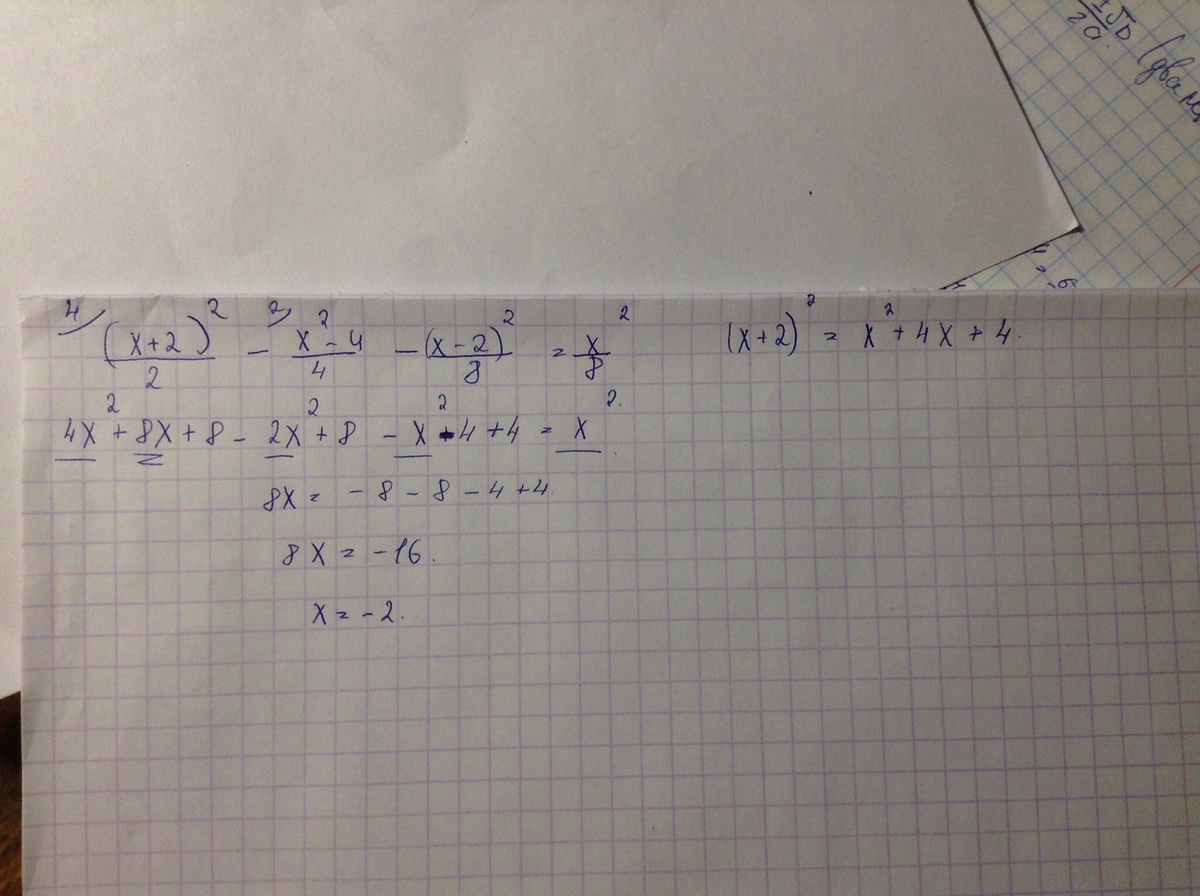 ±√D
2a (два
4) 2)
(x+2)²/2 - (x²-4)/4 - (x-2)²/8 = x²/8
(x+2)² = x²+4x+4.
4x²+8x+8-2x²+8-x²-4+4=x².
8x = -8-8-4+4.
8x = -16.
x = -2.